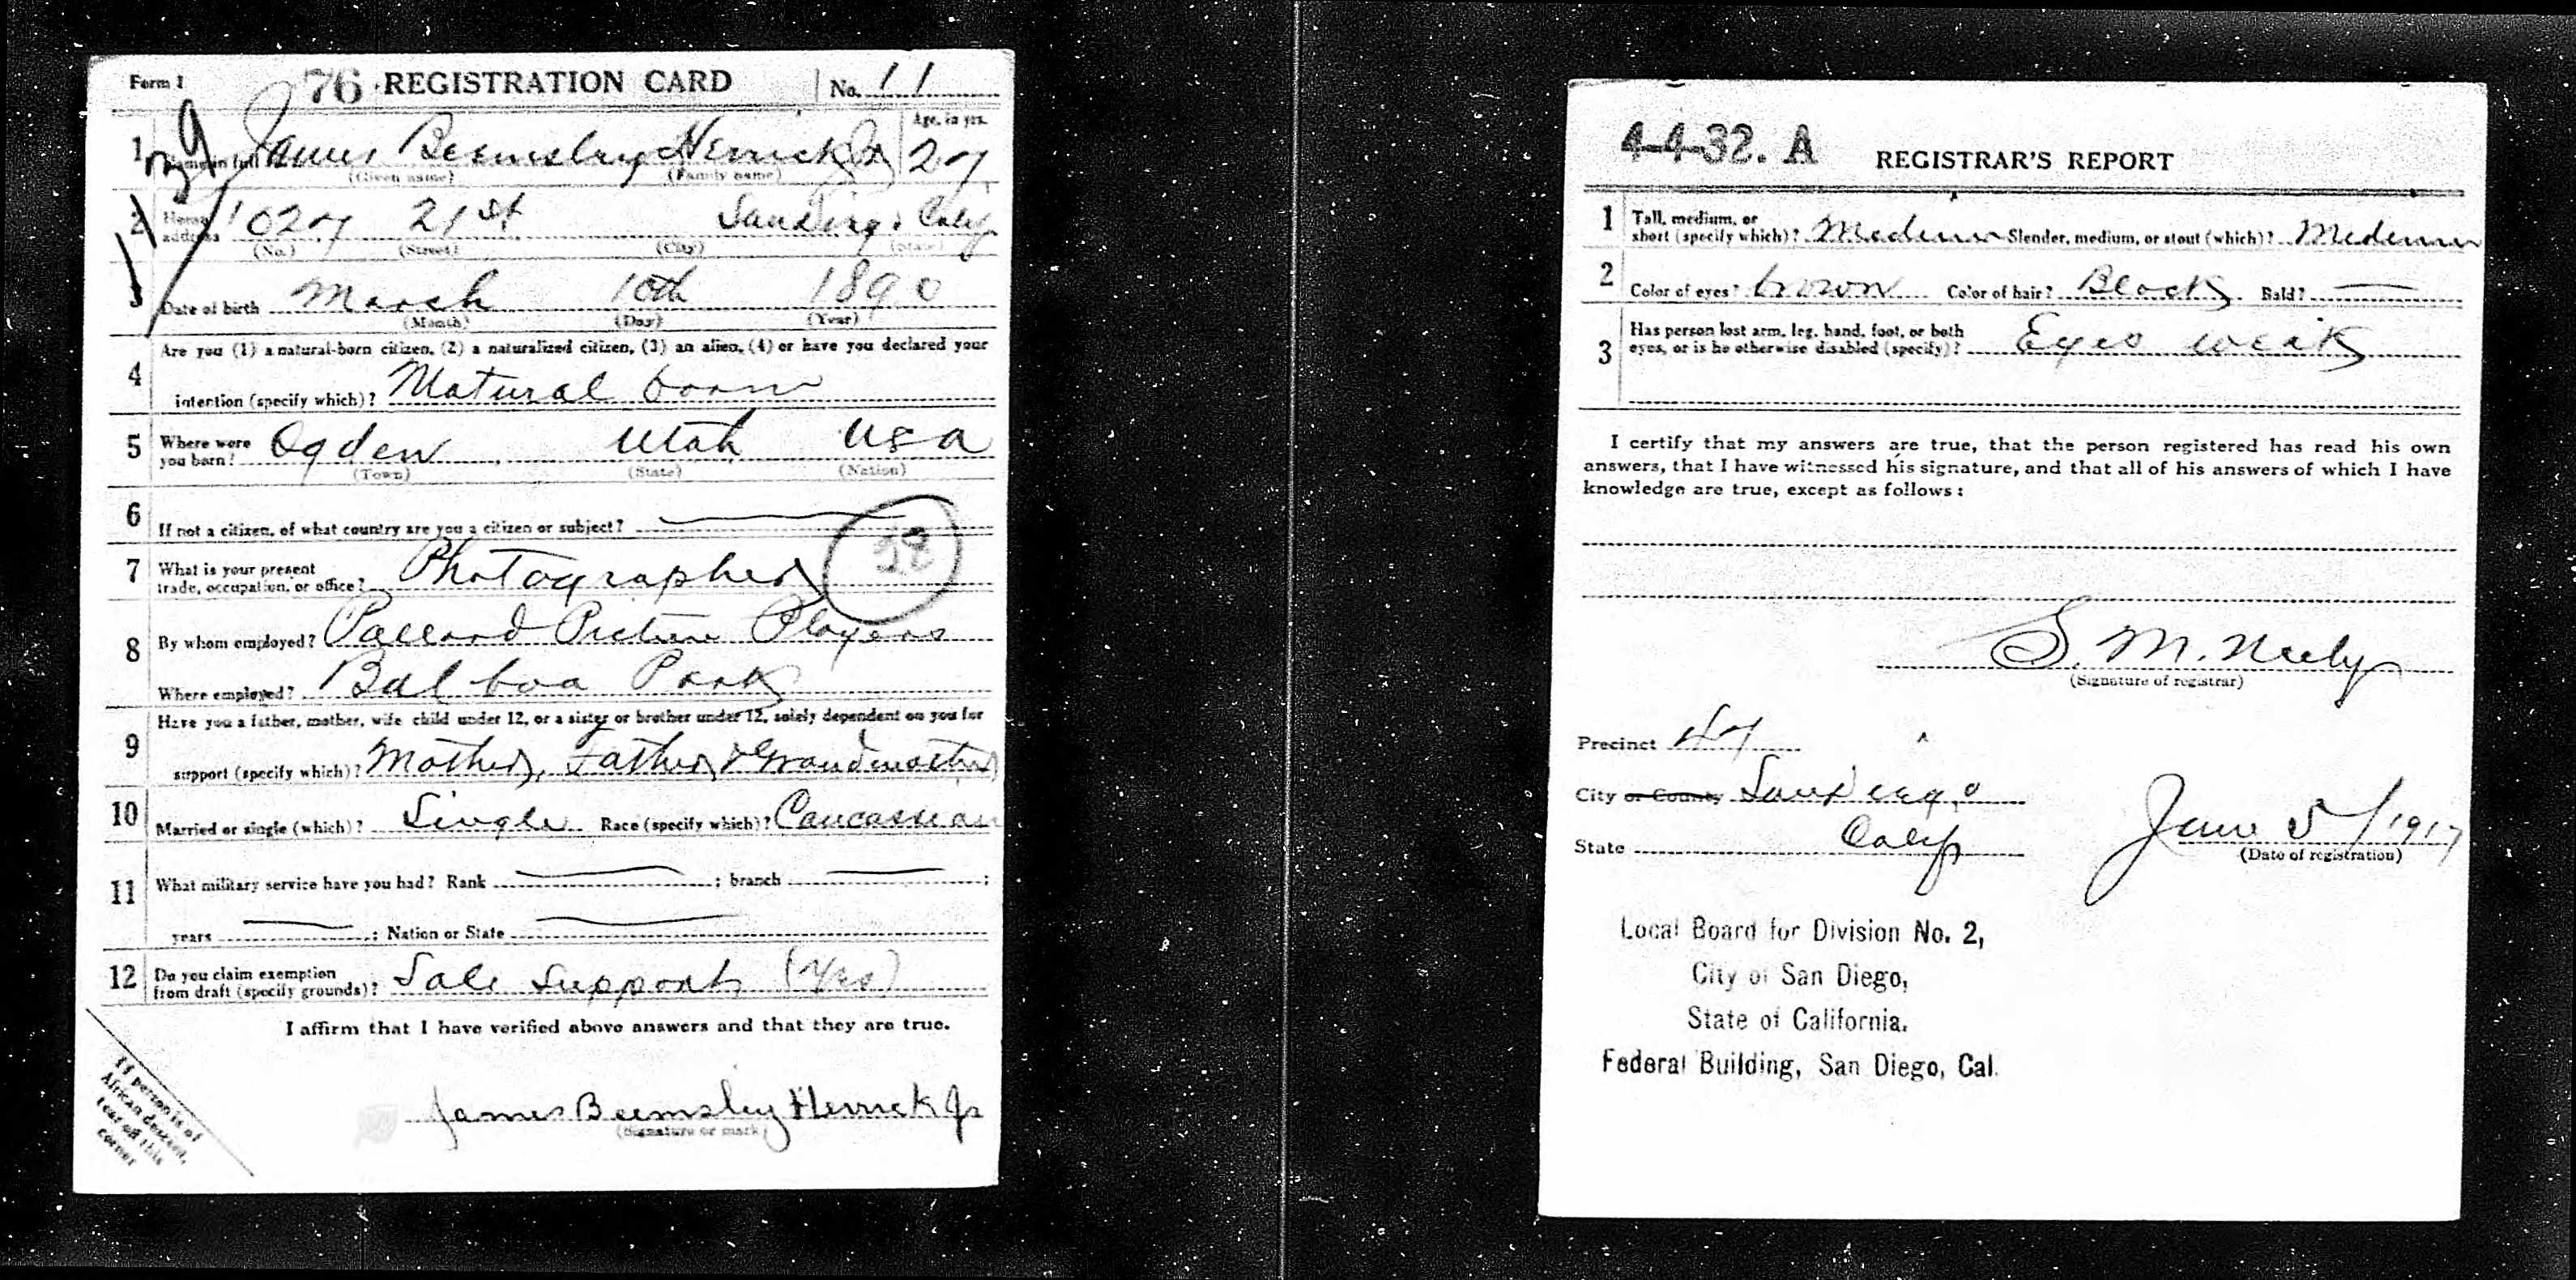 Form 1 76 REGISTRATION CARD No. 11
1 Name in full James Beemsley Herrick Jr Age, in yrs. 27
(Given name) (Family name)
2 Home address 1027 21st San Diego Calif
(No.) (Street) (City) (State)
3 Date of birth March 10th 1890
(Month) (Day) (Year)
Are you (1) a natural-born citizen, (2) a naturalized citizen, (3) an alien, (4) or have you declared your
4 intention (specify which)? Natural born
5 Where were you born? Ogden Utah USA
(Town) (State) (Nation)
6 If not a citizen, of what country are you a citizen or subject?
7 What is your present
trade, occupation, or office? Photographer
8 By whom employed? Pollard Picture Players
Where employed? Balboa Park
Have you a father, mother, wife child under 12, or a sister or brother under 12, solely dependent on you for
9 support (specify which)? Mother, Father & Grandmother
10 Married or single (which)? Single Race (specify which)? Caucassian
11 What military service have you had? Rank ; branch ;
years ; Nation or State
12 Do you claim exemption
from draft (specify grounds)? Sole Support (Yes)
I affirm that I have verified above answers and that they are true.
James Beemsley Herrick Jr
(Signature or mark)
If person is of
African descent,
tear off this
corner
4-4-32. A REGISTRAR'S REPORT
1 Tall, medium, or
short (specify which)? Medium Slender, medium, or stout (which)? Medium
2 Color of eyes? brown Color of hair? Black Bald?
3 Has person lost arm, leg, hand, foot, or both
eyes, or is he otherwise disabled (specify)? Eyes weak
I certify that my answers are true, that the person registered has read his own
answers, that I have witnessed his signature, and that all of his answers of which I have
knowledge are true, except as follows:
S. M. Neely
(Signature of registrar)
Precinct 47
City or County San Diego
State Calif June 5/1917
(Date of registration)
Local Board for Division No. 2,
City of San Diego,
State of California.
Federal Building, San Diego, Cal.